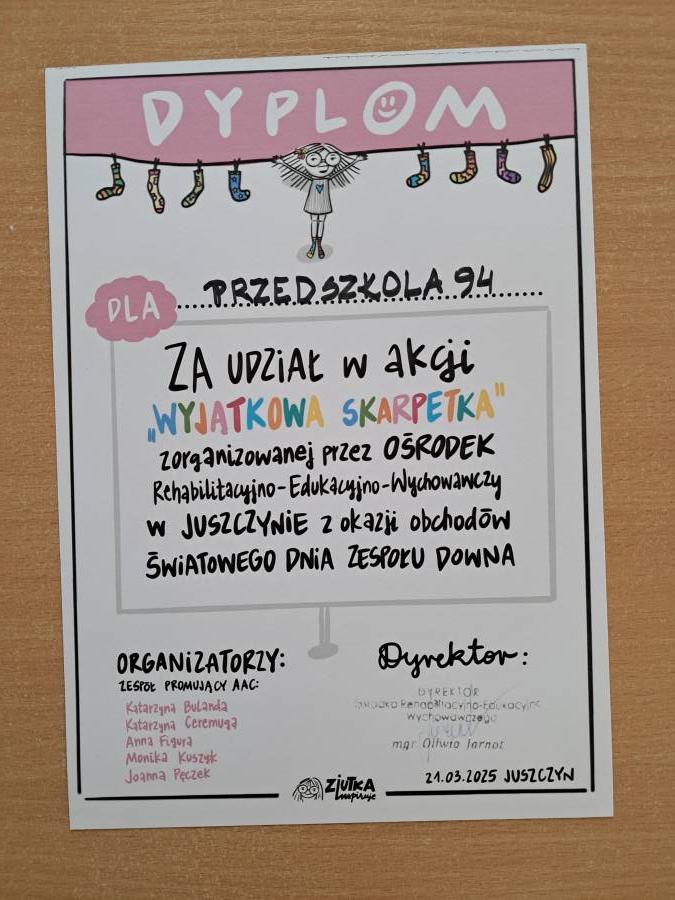 DYPLOM
DLA PRZEDSZKOLA 94
ZA UDZIAŁ w akcji
„WYJĄTKOWA SKARPETKA"
zorganizowanej przez OŚRODEK
Rehabilitacyjno-Edukacyjno-Wychowawczy
w JUSZCZYNIE z okazji obchodów
ŚWIATOWEGO DNIA ZESPOŁU DOWNA
ORGANIZATORZY:
ZESPÓŁ PROMUJĄCY AAC:
Katarzyna Bulanda
Katarzyna Ceremuga
Anna Figura
Monika Kuszyk
Joanna Pęczek
Dyrektor:
DYREKTOR
Ośrodka Rehabilitacyjno-Edukacyjno
Wychowawczego
mgr Oliwia
21.03.2025 JUSZCZYN
ZIUTKA
inspiruje